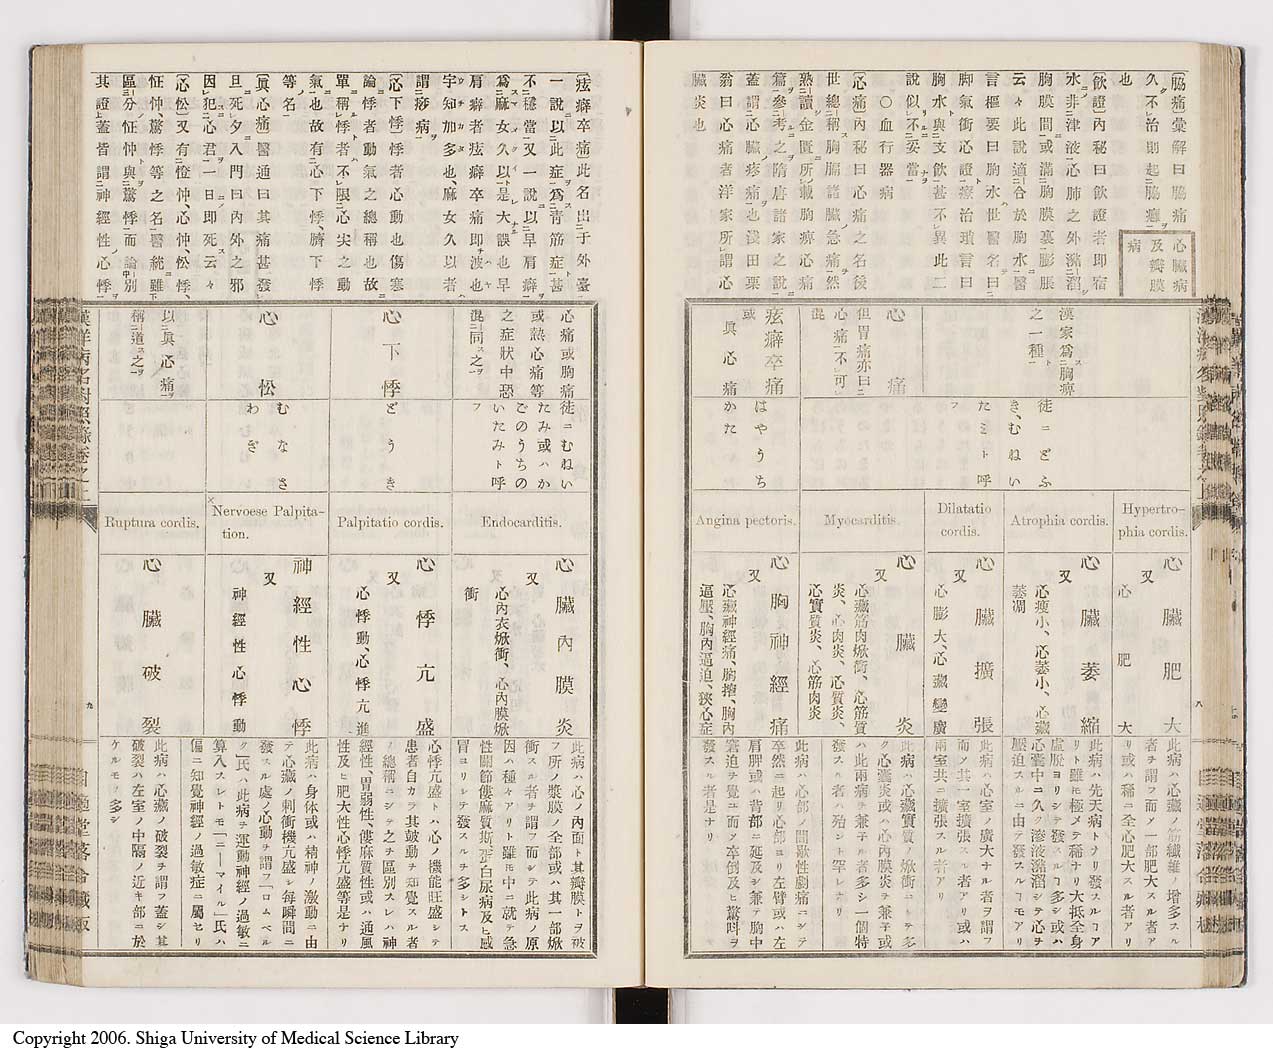 〔脇痛〕彙解曰脇痛
久不治則起脇癰
也
心臟病
及瓣膜
病
〔飮證〕内秘曰飮證者即宿
水非津液心肺之外瀦溜
胸膜間或滿胸膜裏膨脹
云々此説適合於胸水醫
言樞要曰胸水世醫名曰
脚氣衝心證療治瑣言曰
胸水與支飮甚不異此二
説似不妥當
〇血行器病
〔心痛〕内秘曰心痛之名後
世總稱胸膈諸臟急痛然
熟讀金匱所載胸痺心痛
篇參考之隋唐諸家之説
蓋謂心臟疼痛也淺田栗
翁曰心痛者洋家所謂心
臟炎也
漢家爲胸痹
之一種
心痛
但胃痛亦曰
心痛不可
混
痃癖卒痛
或
眞心痛
徒ニどふ
き、むねい
たミト呼
フ
はやうち
かた
Hypertro-
phia cordis.
Atrophia cordis.
Dilatatio
cordis.
Myocarditis.
Angina pectoris.
心臟肥大
又
心肥大
心臟萎縮
又
心瘦小、心萎小、心臟
萎凋
心臟擴張
又
心膨大、心臟變廣
心臟炎
又
心臟筋肉焮衝、心筋質
炎、心肉炎、心質炎、
心實質炎、心筋肉炎
心胸神經痛
又
心臟神經痛、胸搾、胸内
逼壓、胸内逼迫、狹心症
此病ハ心臟ノ筋纖維ノ增多スル
者ヲ謂フ而メ一部肥大スル者ア
リ或ハ稀ニ全心肥大スル者アリ
此病ハ先天病トナリ發スルヿア
リト雖モ極メテ稀ナリ大抵全身
虛脫ヨリシテ發スルヿ多シ或ハ
心囊中ニ久ク滲液瀦溜シテ心ヲ
壓迫スルニ由テ發スルヿモアリ
此病ハ心室ノ廣大ナル者ヲ謂フ
而メ其一室擴張スル者アリ或ハ
兩室共ニ擴張スル者アリ
此病ハ心臟實質ノ焮衝ニシテ多
ク心囊炎或ハ心内膜炎ヲ兼子或
ハ此兩病ヲ兼子ル者多シ一個特
發スル者ハ殆ント罕レナリ
此病ハ心部ノ間歇性劇痛ニシテ
卒然ニ起リ心部ヨリ左臂或ハ左
肩胛或ハ背部ニ延及シ兼テ胸中
窘迫ヲ覺エ而メ卒倒及ヒ驚呌ヲ
發スル者是ナリ
八
〔痃癖卒痛〕此名出于外臺
一説以此症爲靑筋症甚
不穩當又一説以早肩癖
爲麻女久以是大誤也早
肩癖者痃癖卒痛即波也
宇知加多也、麻女久以者
謂痧病
〔心下悸〕悸者心動也傷寒
論悸者動氣之總稱也故
單稱悸者不限心尖之動
氣也故有心下悸、臍下悸
等名
〔眞心痛〕醫通曰其痛甚發
旦死夕入門曰内外之邪
因犯心君一日即死云々
〔心忪〕又有憕忡、心忡、忪悸、
怔忡、驚悸等之名醫統雖下
區分怔忡與驚悸而論中別
其證上蓋皆謂神經性心悸
心痛或胸痛
或熱心痛等
之症狀中恐
混同之
心下悸
心忪
以眞心痛
稱道之
徒ニむねい
たみ或ハか
ごのうちの
いたみト呼
フ
どうき
むなさ
わぎ
Endocarditis.
Palpitatio cordis.
Nervoese Palpita-
tion.
Ruptura cordis.
心臟内膜炎
又
心内衣焮衝、心内膜焮
衝
心悸亢盛
又
心悸動、心悸亢進
神經性心悸
又
神經性心悸動
心臟破裂
此病ハ心ノ内面ト其瓣膜トヲ被
フ所ノ漿膜ノ全部或ハ其一部焮
衝スル者ヲ謂フ而シテ此病ノ原
因ハ種々アリト雖モ中ニ就テ急
性關節僂麻質斯、蛋白尿病及ヒ感
冒ヨリシテ發スルヿ多シトス
心悸亢盛トハ心ノ機能旺盛シテ
患者自カラ其鼓動ヲ知覺スル者
ノ總稱ニシテ之ヲ區別スレハ神
經性、胃弱性、僂麻質性或ハ通風
性及ヒ肥大性心悸亢盛等是ナリ
此病ハ身体或ハ精神ノ激動ニ由
テ心臟ノ刺衝機亢盛シ每瞬間ニ
發スル處ノ心動ヲ謂フ「ロムベル
ク」氏ハ此病ヲ運動神經ノ過敏ニ
算入スレトモ「ニーマイル」氏ハ
偏ニ知覺神經ノ過敏症ニ屬セリ
此病ハ心臟ノ破裂ヲ謂フ蓋シ其
破裂ハ左室ノ中隔ノ近キ部ニ於
ケルモノ多シ
漢洋病名對照錄卷之上
九
Copyright 2006. Shiga University of Medical Science Library